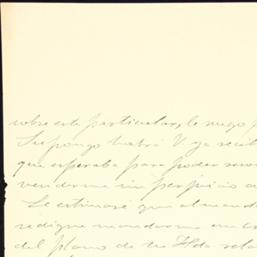 sobre este particular, le ruego
Supongo habrá V. ya recib
que esperaba para poder
venderme sin perjuicio
Le estimaré que al mand
se digne mandarme
del plano de tu Hda